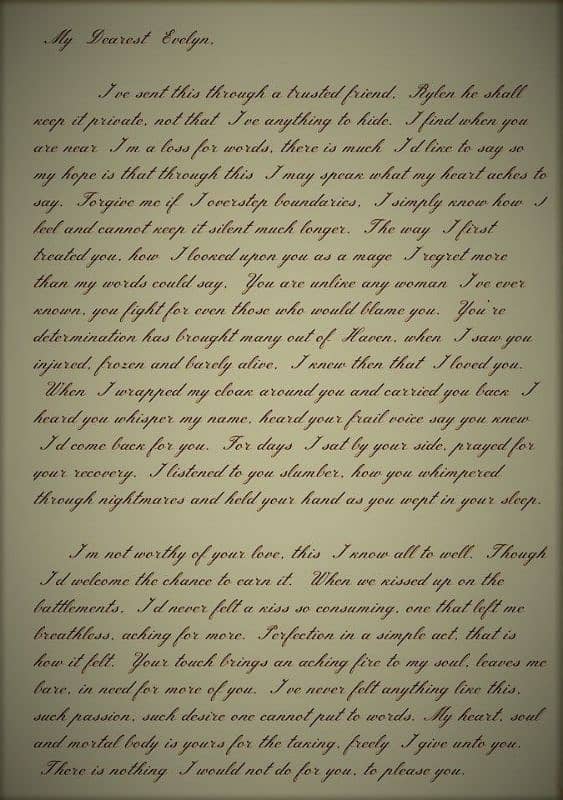 My Dearest Evelyn,
I've sent this through a trusted friend. Rylen he shall
keep it private, not that I've anything to hide. I find when you
are near I'm a loss for words, there is much I'd like to say so
my hope is that through this I may speak what my heart aches to
say. Forgive me if I overstep boundaries, I simply know how I
feel and cannot keep it silent much longer. The way I first
treated you, how I looked upon you as a mage I regret more
than my words could say. You are unlike any woman I've ever
known, you fight for even those who would blame you. You're
determination has brought many out of Haven, when I saw you
injured, frozen and barely alive, I knew then that I loved you.
When I wrapped my cloak around you and carried you back I
heard you whisper my name, heard your frail voice say you knew
I'd come back for you. For days I sat by your side, prayed for
your recovery. I listened to you slumber, how you whimpered
through nightmares and held your hand as you wept in your sleep.
I'm not worthy of your love, this I know all to well. Though
I'd welcome the chance to earn it. When we kissed up on the
battlements, I'd never felt a kiss so consuming, one that left me
breathless, aching for more. Perfection in a simple act, that is
how it felt. Your touch brings an aching fire to my soul, leaves me
bare, in need for more of you. I've never felt anything like this,
such passion, such desire one cannot put to words. My heart, soul
and mortal body is yours for the taking, freely I give unto you.
There is nothing I would not do for you, to please you.